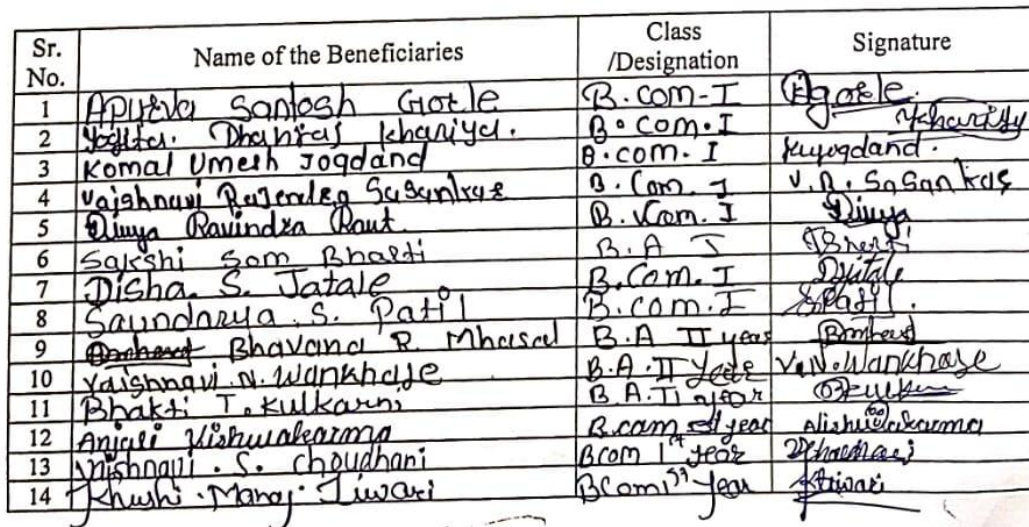 Sr. No. Name of the Beneficiaries Class /Designation Signature
1 Apurva Santosh Gotle B.com-I
2 Yogita. Dhanraj Khariya. B.com.I Ykhariya
3 Komal Umesh Jogdand B.com. I kujogdand.
4 Vaishnavi Rajendra Sasankar B.Com. I V.R. Sasankar
5 Divya Ravindra Raut. B.Com. I Divya
6 Sakshi Som Bharti B.A I
7 Disha. S. Jatale B.Com.I
8 Saundarya. S. Patil B.com.I SPatil.
9 Bhavana R. Mhasal B.A II year
10 Vaishnavi.N.Wankhade B.A.II Year V.N.Wankhade
11 Bhakti T. Kulkarni B.A.II year
12 Anjali Vishwakarma B.com year AVishwakarma
13 Vaishnavi. S. Choudhari Bcom 1st year
14 Khushi.Manoj.Tiwari BCom 1st Year ktiwari